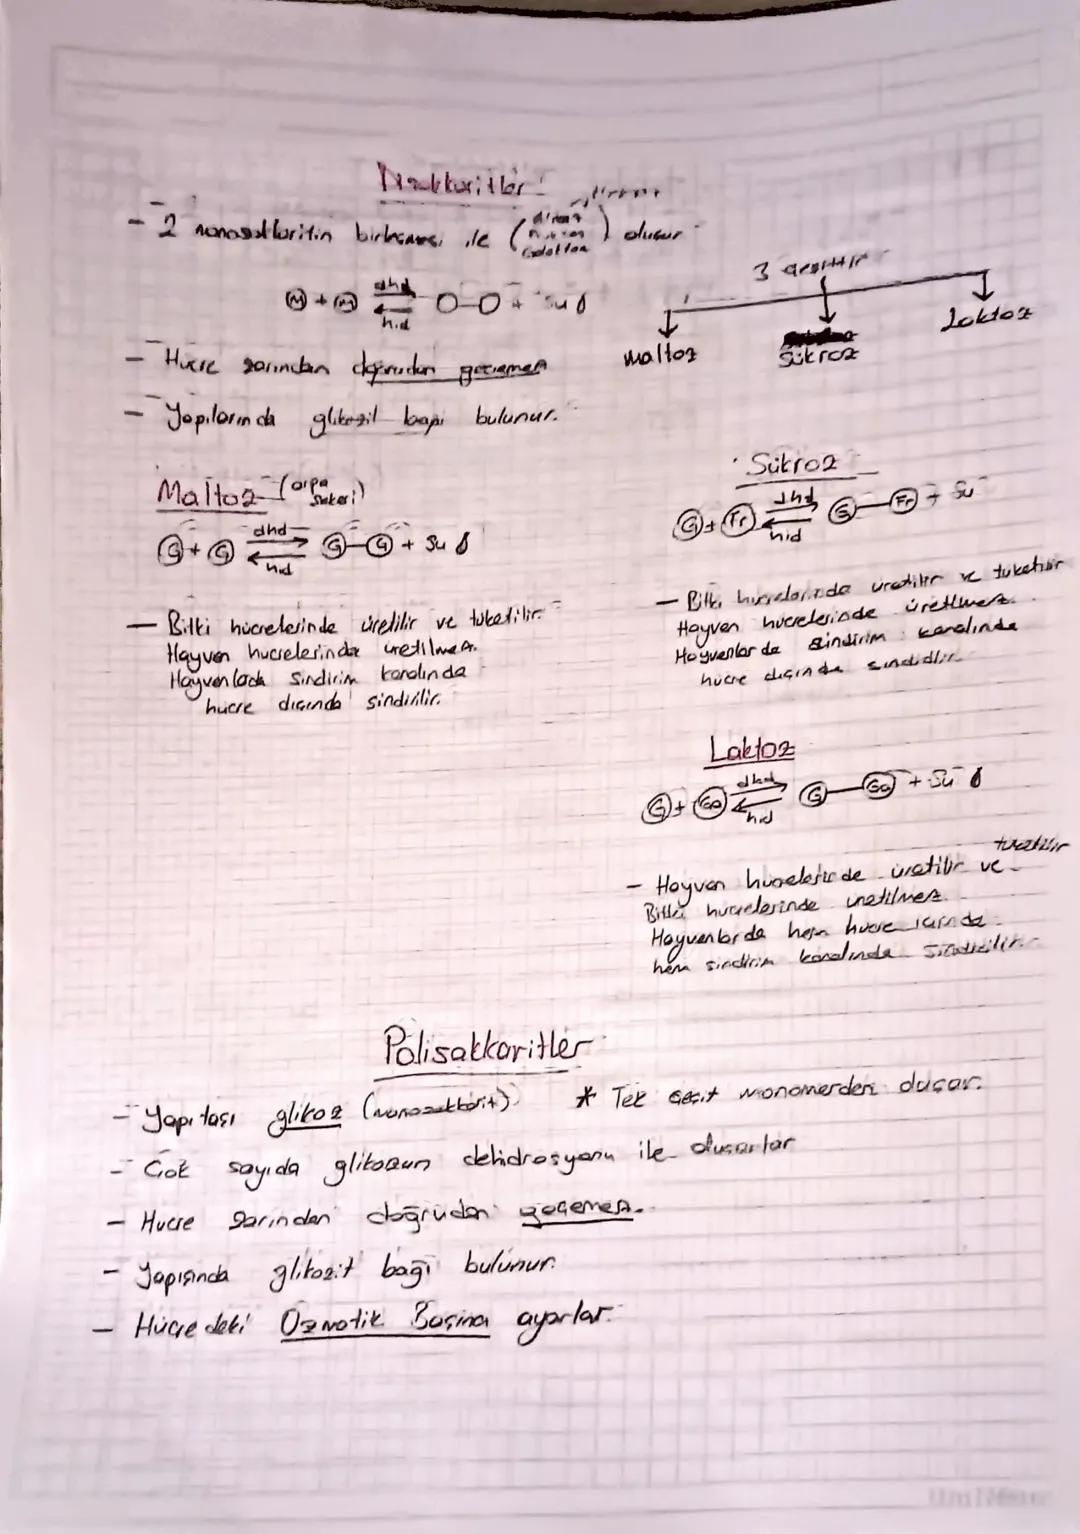 Disakkaritler
- 2 monosakkaritin birleşmesi ile ( ) oluşur
M + M dhd hid O-O + Su
3 çeşittir
Maltoz Sükroz Laktoz
- Hücre zarından doğrudan geçemez
- Yapılarında glikozit bağı bulunur.
Maltoz (arpa şekeri)
G + G dhd hid G-G + Su
- Bitki hücrelerinde üretilir ve tüketilir.
Hayvan hücrelerinde üretilmez.
Hayvanlarda sindirim kanalında
hücre dışında sindirilir.
Sükroz
G + Fr dhd hid G-Fr + Su
- Bitki hücrelerinde üretilir ve tüketilir
Hayvan hücrelerinde üretilmez.
Hayvanlarda sindirim kanalında
hücre dışında sindirilir.
Laktoz
G + Ga dhd hid G-Ga + Su
- Hayvan hücrelerinde üretilir ve tüketilir
Bitki hücrelerinde üretilmez.
Hayvanlarda hem hücre içinde
hem sindirim kanalında sindirilir.
Polisakkaritler
- Yapıtaşı glikoz (monosakkarit) * Tek çeşit monomerden oluşur.
- Çok sayıda glikozun dehidrosyonu ile oluşurlar
- Hücre zarından doğrudan geçemez.
- Yapısında glikozit bağı bulunur.
- Hücredeki Ozmotik Basıncı ayarlar.